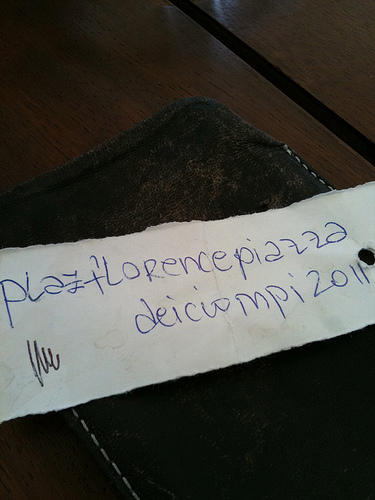 plazflorencepiazza
deiciompi2011